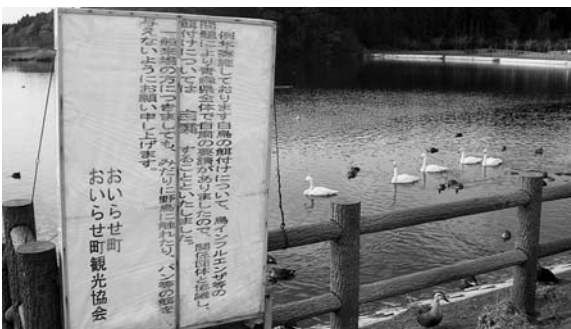 例年実施しております白鳥の餌付けについて、鳥インフルエンザ等の
問題により青森県全体で自粛の要請がありましたので、関係団体と協議し、
餌付けについては 自粛 することといたしました。
一般来場の方につきましても、みだりに野鳥に触れたり、パン等の餌を
与えないようにお願い申し上げます。
おいらせ町
おいらせ町観光協会